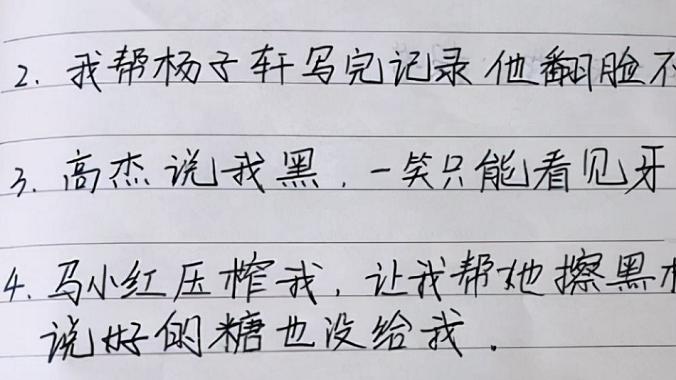 2. 我帮杨子轩写完记录他翻脸不
3. 高杰说我黑，一笑只能看见牙
4. 马小红压榨我，让我帮她擦黑
说好的糖也没给我.